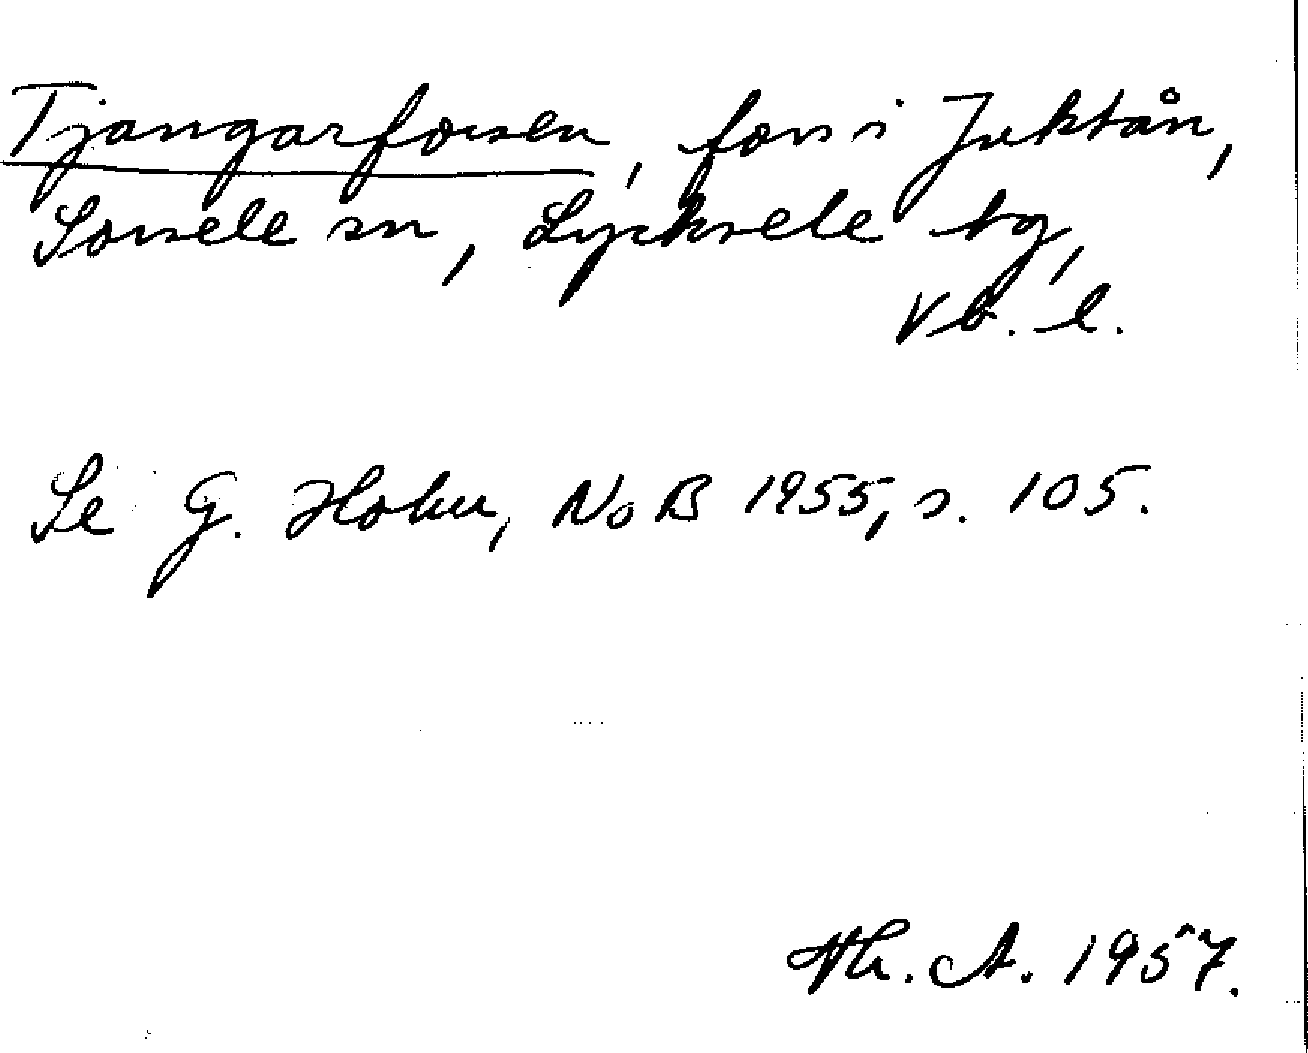 Tjangarforsen, fors i Juktån,
Sorsele sn, Lycksele tg,
Vb. l.
Se G. Holm, NoB 1955, s. 105.
Th. A. 1957.